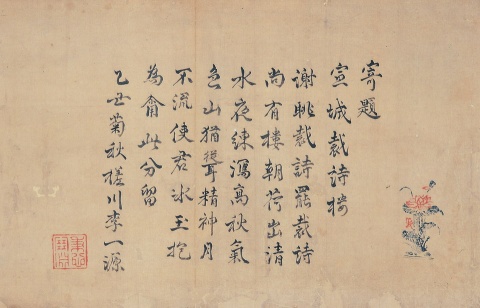 寄題
宣城裁詩樓
謝眺裁詩罷裁詩
尚有樓朝荷出清
水夜練瀉高秋氣
色山猶聳精神月
不流使君冰玉抱
為此分留
乙丑菊秋槎川李一源